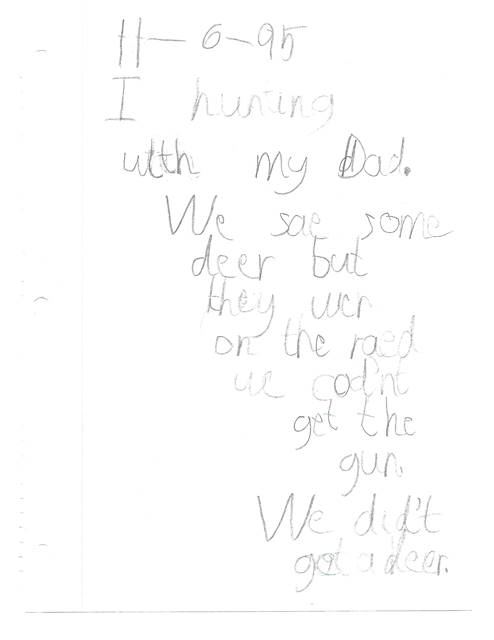 11-6-95
I hunting
with my Dad.
We sae some
deer but
they wer
on the raed
we cod'nt
get the
gun.
We did't
get a deer.